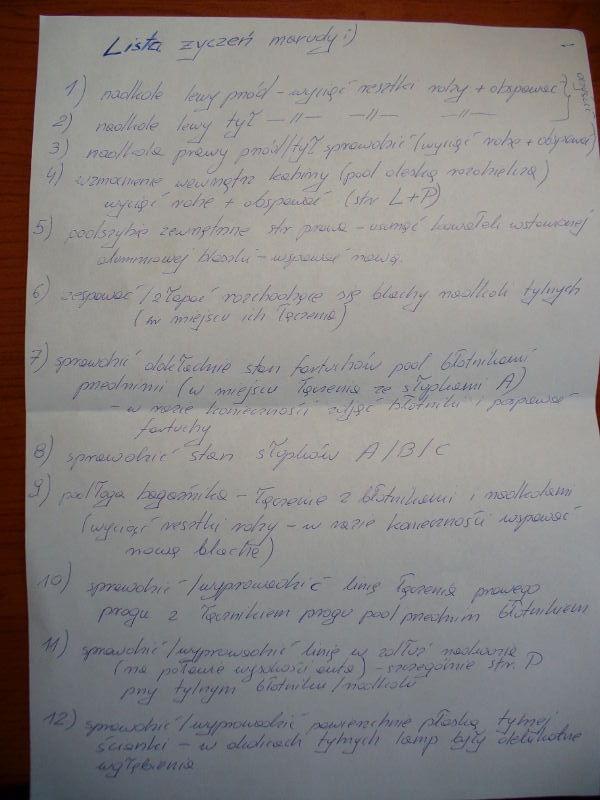 Lista życzeń marudy :)
1) nadkole lewy przód - wyciąć resztki rdzy + obspawać
2) nadkole lewy tył —||— —||— —||—
3) nadkola prawy przód/tył sprawdzić (wyciąć rdzę + obspawać)
4) wzmocnienie wewnątrz kabiny (pod deską rozdzielczą)
wyciąć rdzę + obspawać (str L+P)
5) podszybie zewnętrzne str prawa - usunąć kawałek wstawionej
aluminiowej blaszki - wspawać nową.
6) zespawać/złapać rozchodzące się blachy nadkoli tylnych
(w miejscu ich łączenia)
7) sprawdzić dokładnie stan fartuchów pod błotnikami
przednimi (w miejscu łączenia ze słupkami A)
- w razie konieczności zdjąć błotniki i pospawać
fartuchy
8) sprawdzić stan słupków A/B/C
9) podłoga bagażnika - łączenie z błotnikami i nadkolami
(wyciąć resztki rdzy - w razie konieczności wspawać
nową blachę)
10) sprawdzić/wyprowadzić linię łączenia prawego
progu z łącznikiem progu pod przednim błotnikiem
11) sprawdzić/wyprowadzić linię w zdłuż nadwozia
(na połowie wysokości auta) - szczególnie str. P
przy tylnym błotniku/nadkolu
12) sprawdzić/wyprowadzić powierzchnię płaską tylnej
ścianki - w okolicach tylnych lamp były delikatne
wgłębienia